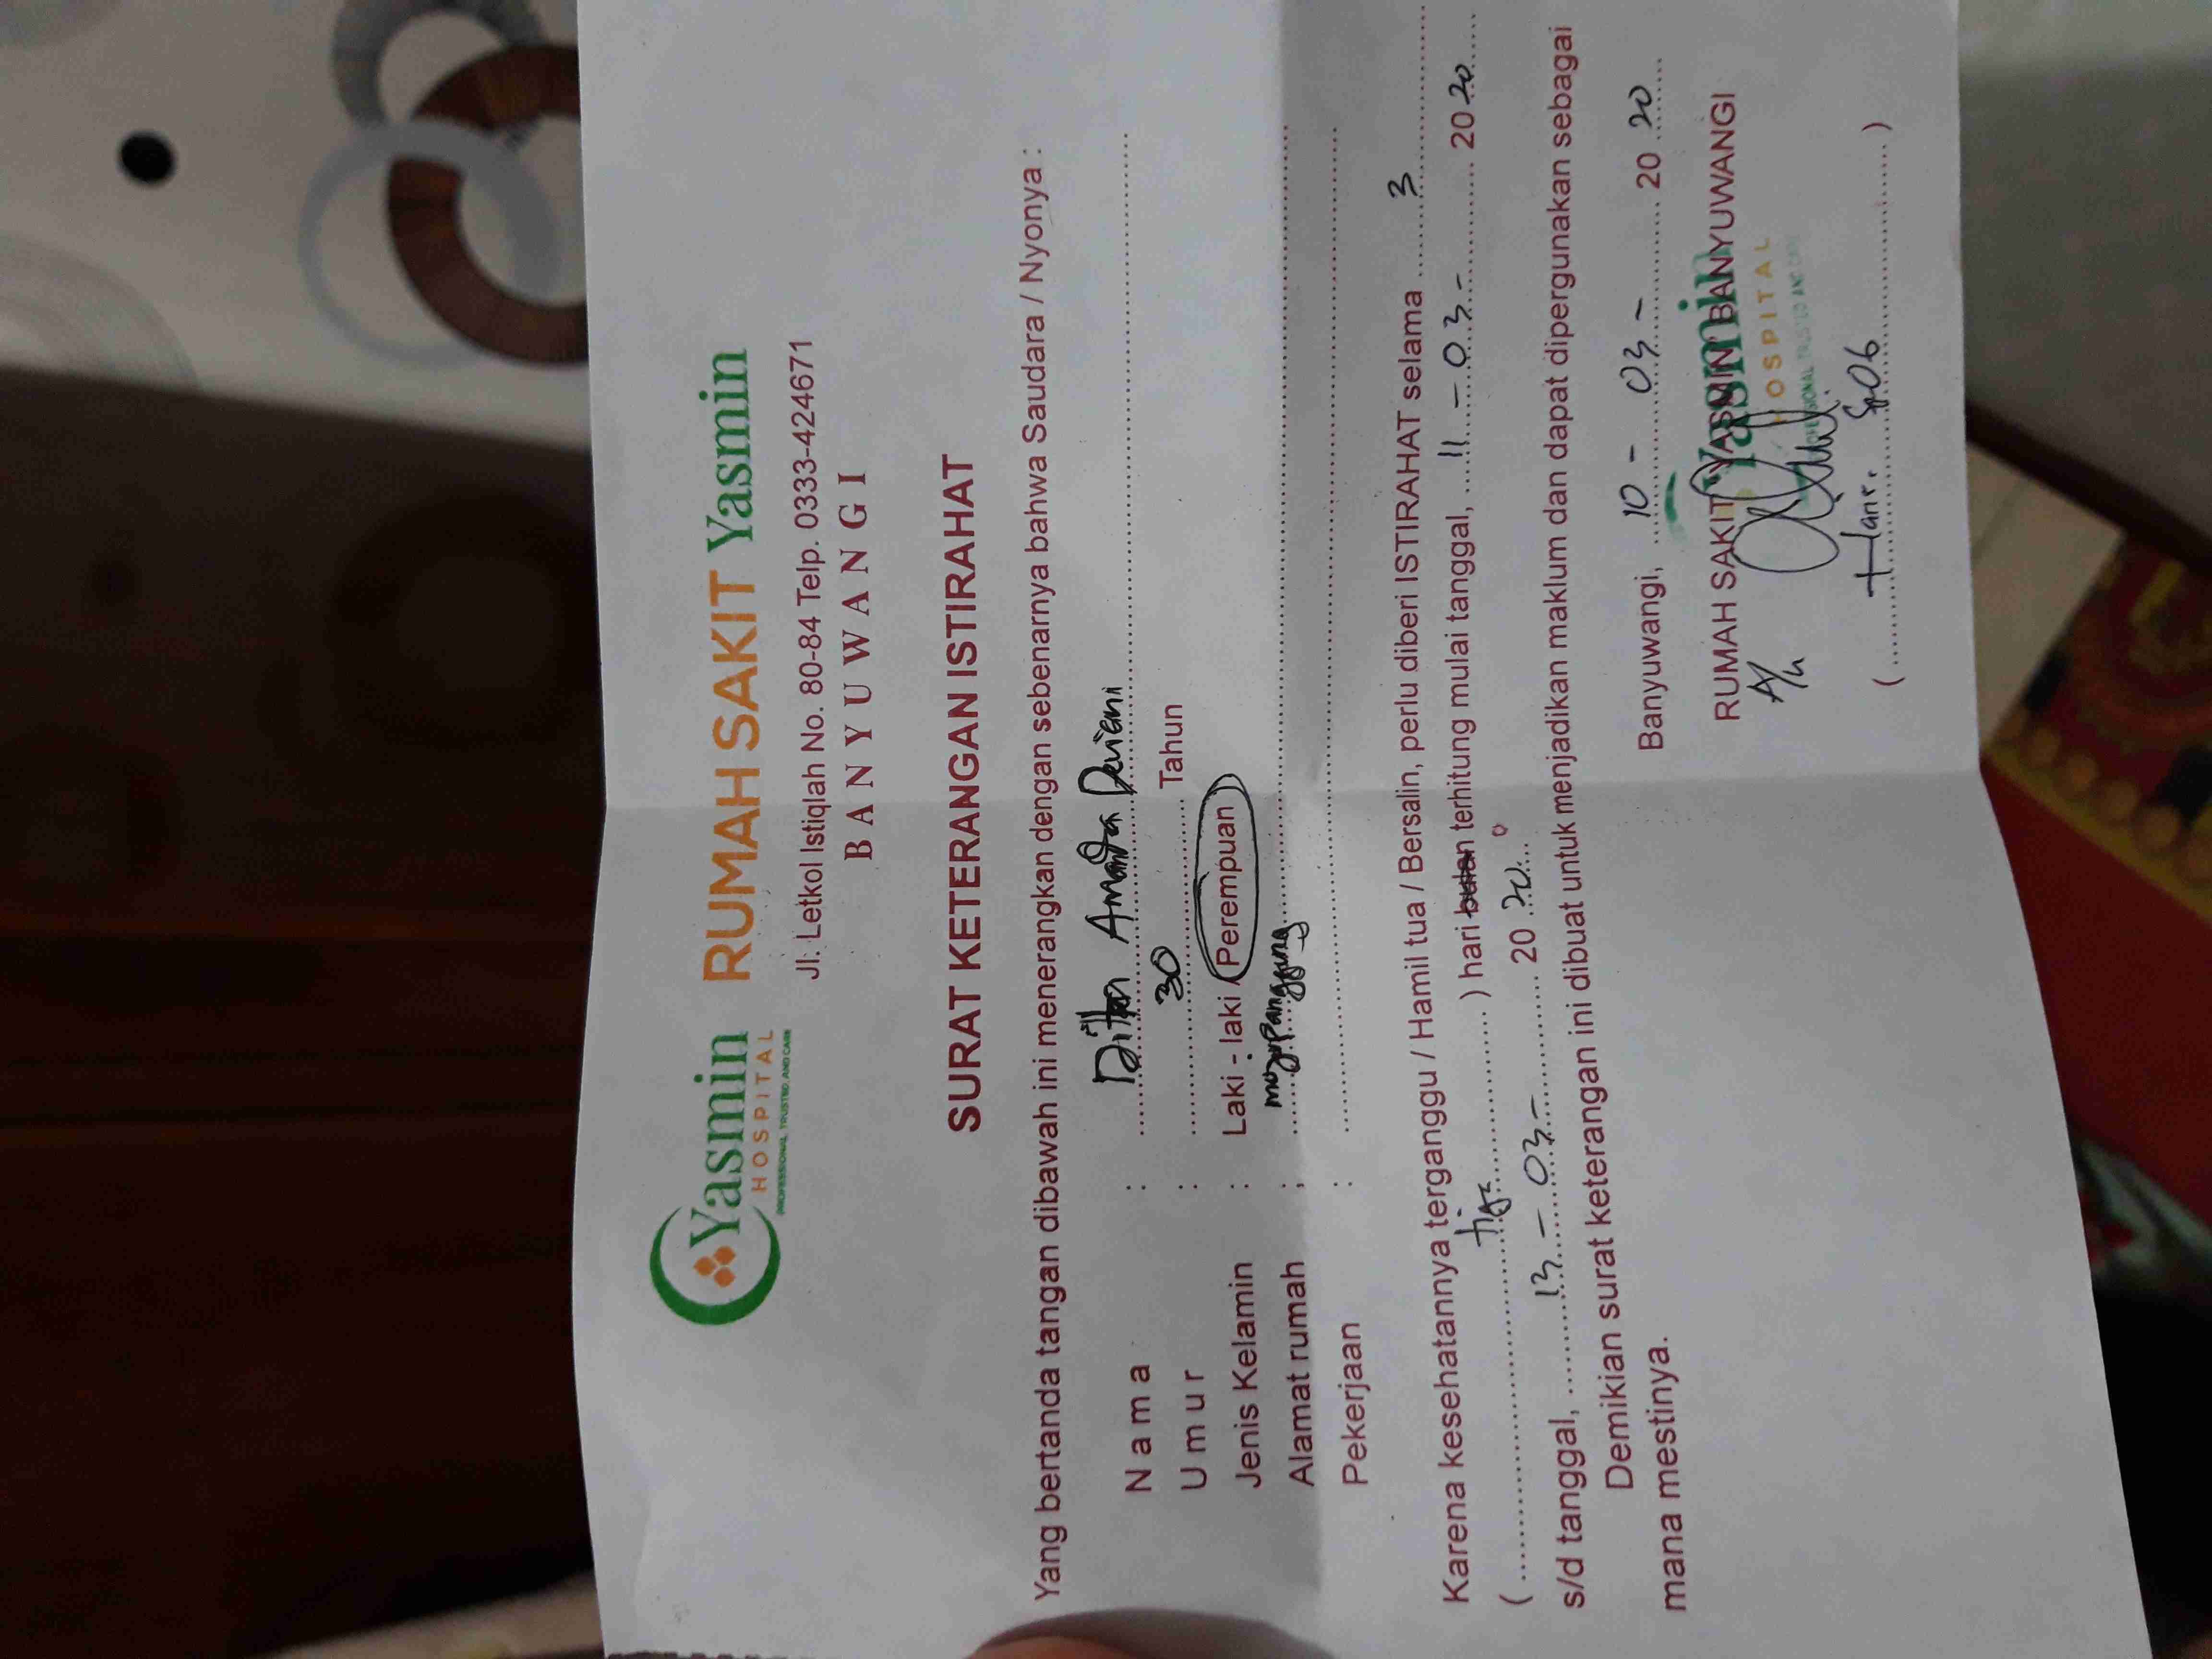 Yasmin
HOSPITAL
PROFESSIONAL, TRUSTED, AND CARE
RUMAH SAKIT Yasmin
Jl. Letkol Istiqlah No. 80-84 Telp. 0333-424671
BANYUWANGI
SURAT KETERANGAN ISTIRAHAT
Yang bertanda tangan dibawah ini menerangkan dengan sebenarnya bahwa Saudara / Nyonya :
Nama : Amanda Deviani
Umur : 30 Tahun
Jenis Kelamin : Laki - laki / Perempuan
Alamat rumah ; mojopanggung
Pekerjaan :
Karena kesehatannya terganggu / Hamil tua / Bersalin, perlu diberi ISTIRAHAT selama 3
( tiga ) hari bulan terhitung mulai tanggal, 11 - 03 - 2020
s/d tanggal, 13 - 03 - 2020
Demikian surat keterangan ini dibuat untuk menjadikan maklum dan dapat dipergunakan sebagai
mana mestinya.
Banyuwangi, 10 - 03 - 2020
RUMAH SAKIT "YASMIN" BANYUWANGI
Yasmin
HOSPITAL
PROFESSIONAL TRUSTED AND CARE